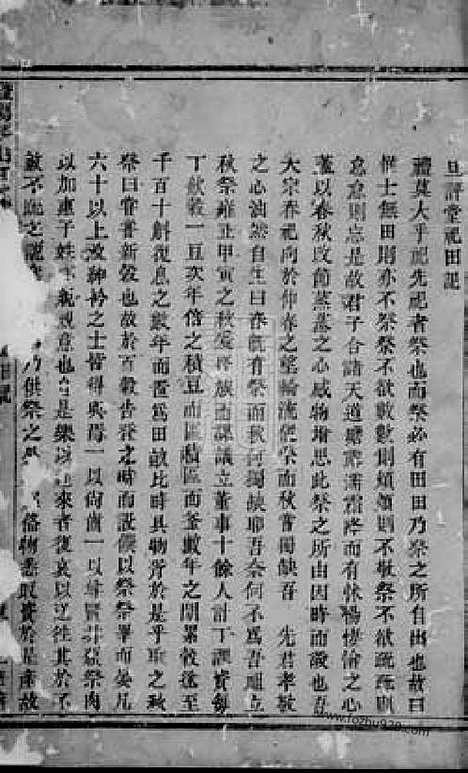 旦評堂祀田記
禮莫大乎祀先祀者祭也而祭必有田田乃祭之所自出也故曰
惟士無田則亦不祭祭不欲數數則煩煩則不敬祭不欲疏疏則
怠怠則忘是故君子合諸天道雨露既濡霜露降而有怵惕悽愴之心
謹以春秋改節蒸蒸之心感物增思此祭之所由因時而設也
大宗春祀向於仲春之望輪流供祭而秋嘗獨缺吾 先君孝敬
之心油然自生曰春既有祭而秋何獨缺耶吾奈何不爲吾祖立
秋祭雍正甲寅之秋爰與族酉謀議立董事十餘人計丁派資每
丁斂穀一豆次年倍之積豆而區積區而釜數年之閒累穀逐至
千百十斛復息之數年而置爲田畝比時具物胥於是乎取之秋
祭曰嘗嘗新穀也故於百穀告登之時而設饌以祭祭畢而宴凡
六十以上及紳衿之士皆得與焉一以尚齒一以尊賢并頒祭肉
以加惠子姓 親親意也於是樂以迎來者復哀以送往其於不
敢不臨之說 乃供祭之 俗物悉取資於是產故